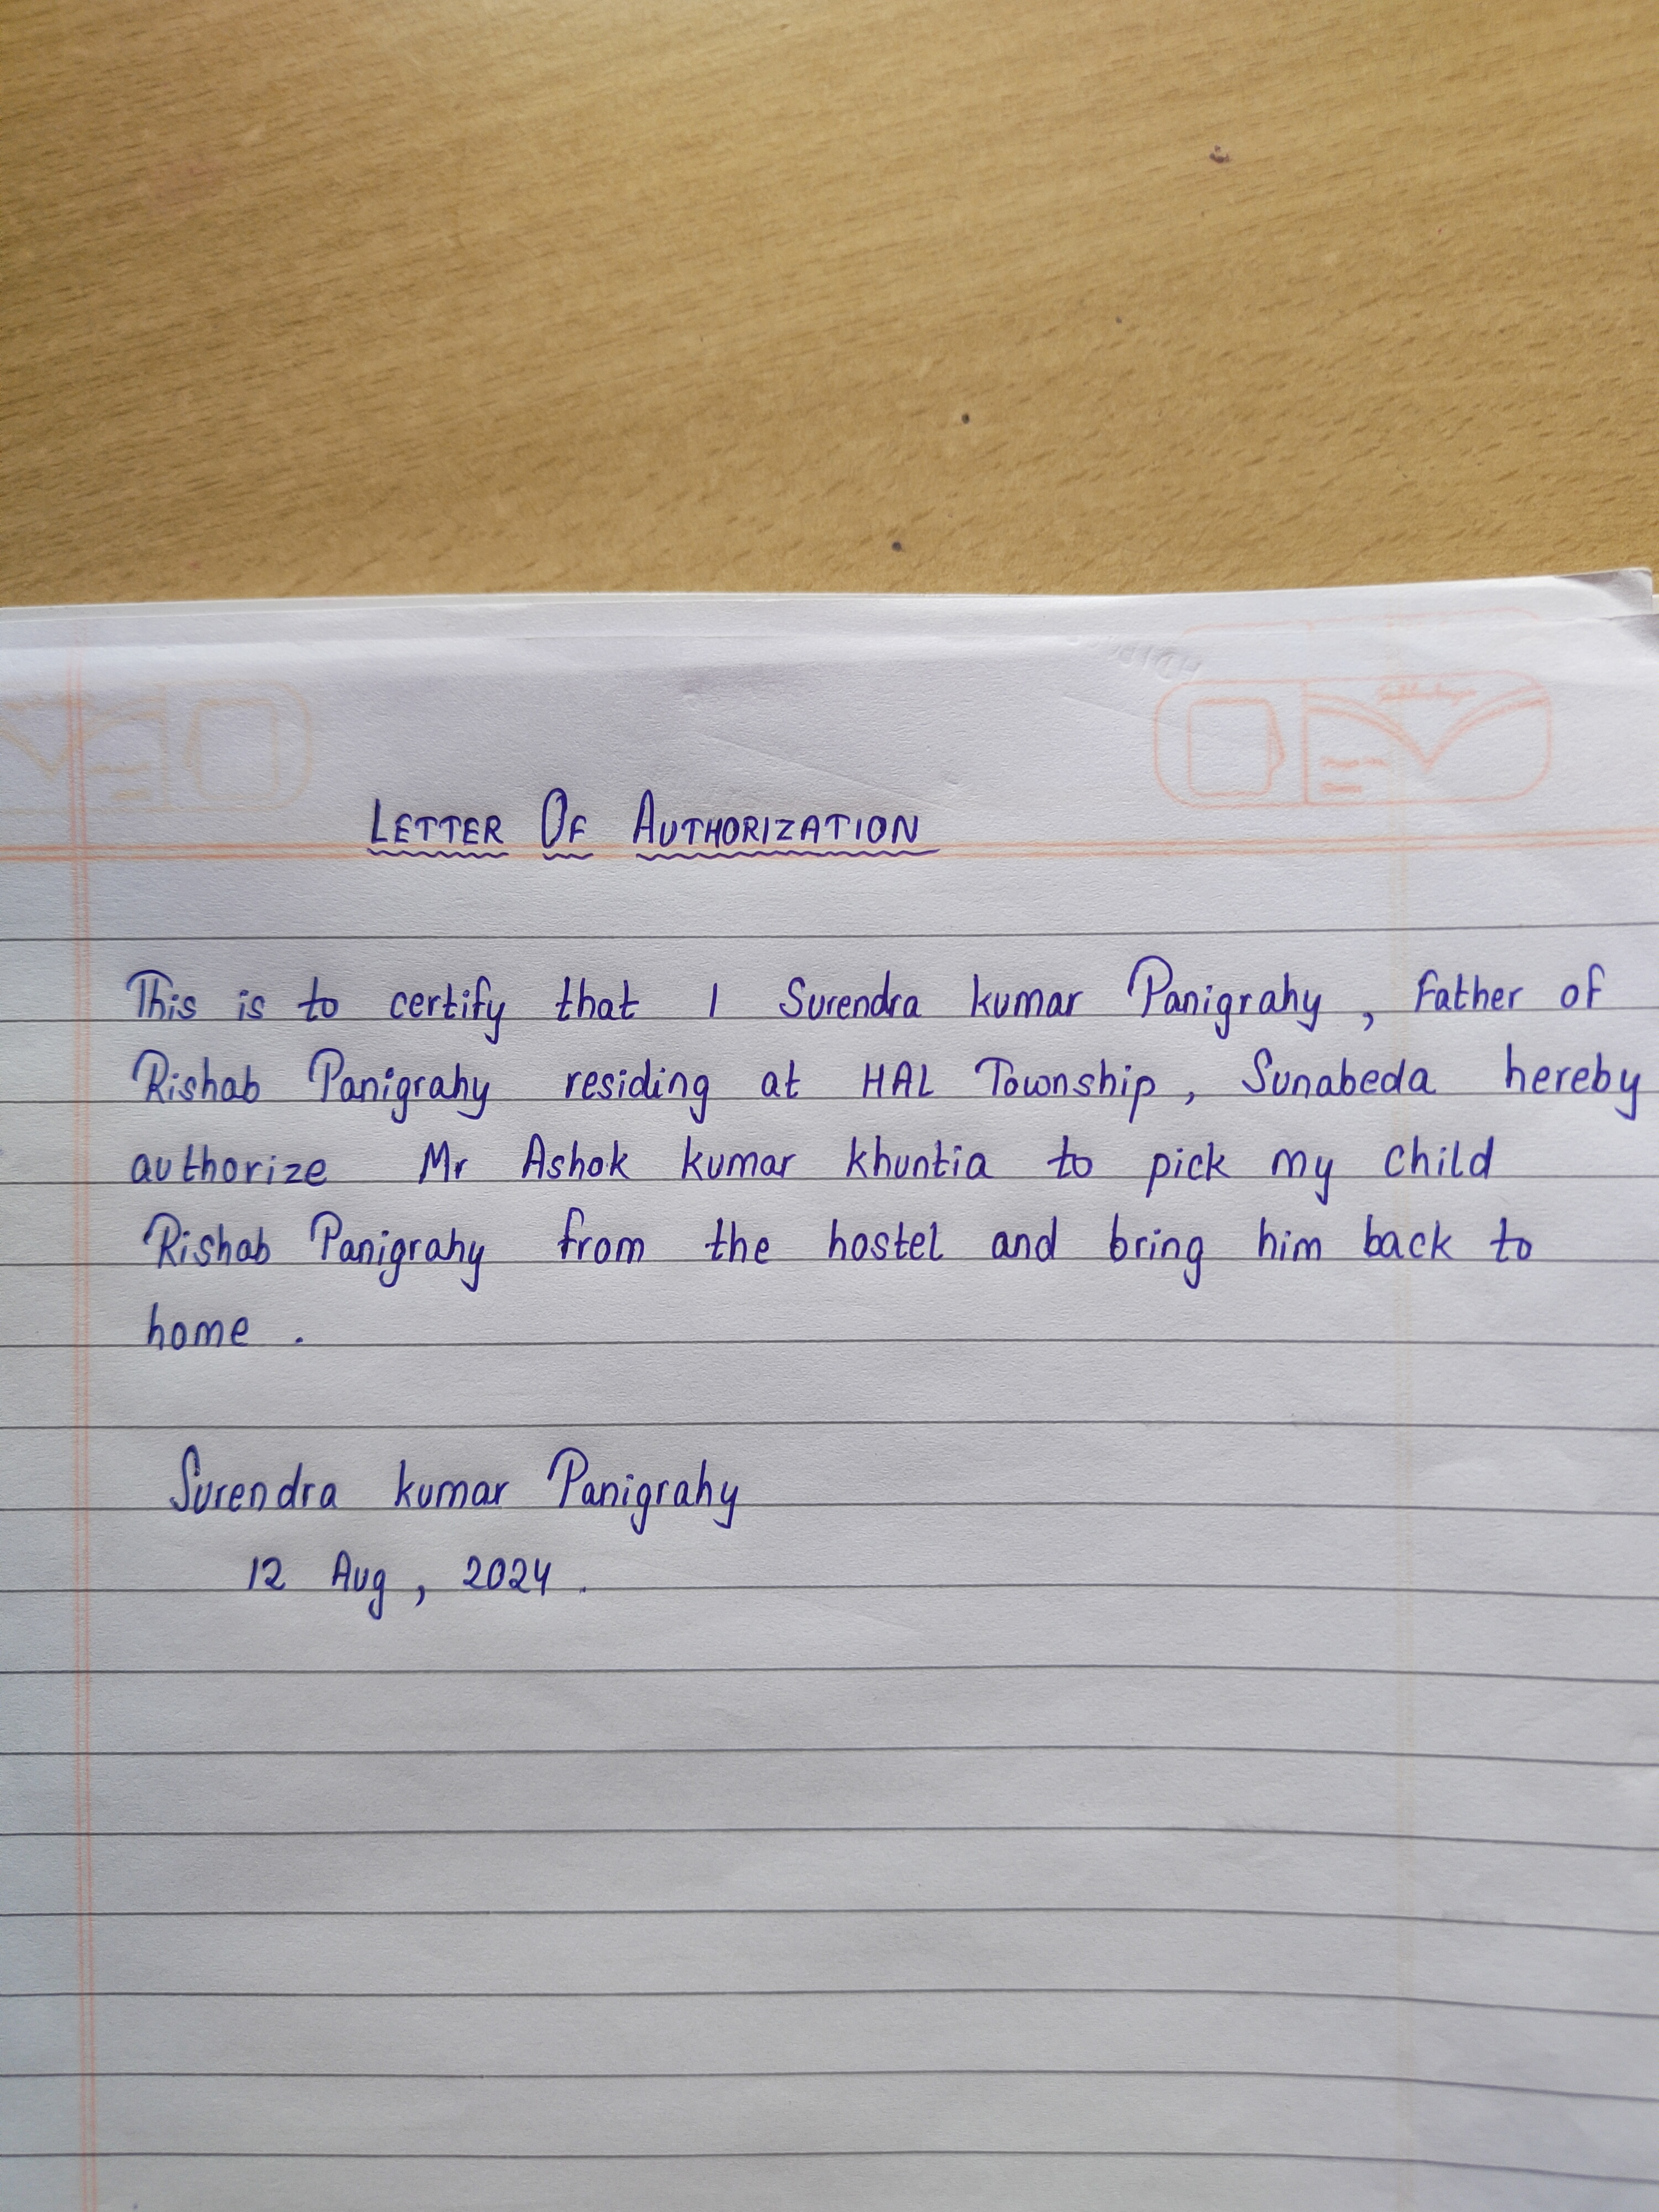 LETTER OF AUTHORIZATION
This is to certify that I Surendra kumar Panigrahy, Father of
Rishab Panigrahy residing at HAL Township, Sunabeda hereby
authorize Mr Ashok kumar khuntia to pick my child
Rishab Panigrahy from the hostel and bring him back to
home.
Surendra kumar Panigrahy
12 Aug, 2024.